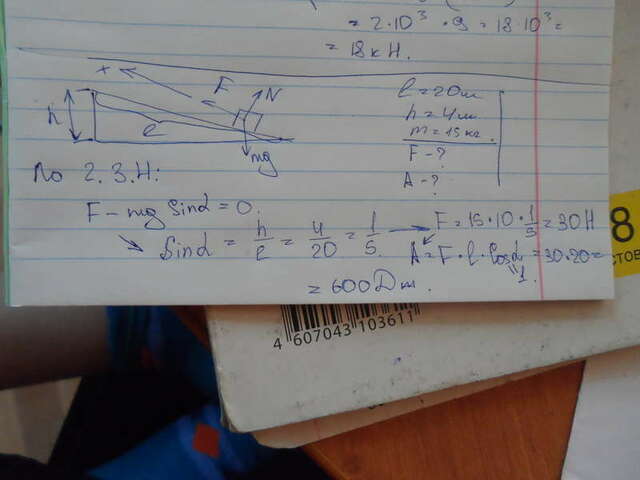 = 2·10³ · 9 = 18·10³ =
= 18 кН.
x
F
N
h
l
mg
l = 20м
h = 4м
m = 15кг.
F - ?
A - ?
По 2.З.Н:
F - mg Sinα = 0.
Sinα = h/l = 4/20 = 1/5
F = 15·10·1/5 = 30Н
A = F·l·Cosα = 30·20 =
1.
= 600Дж.
8
СТОВ
4 607043 103611